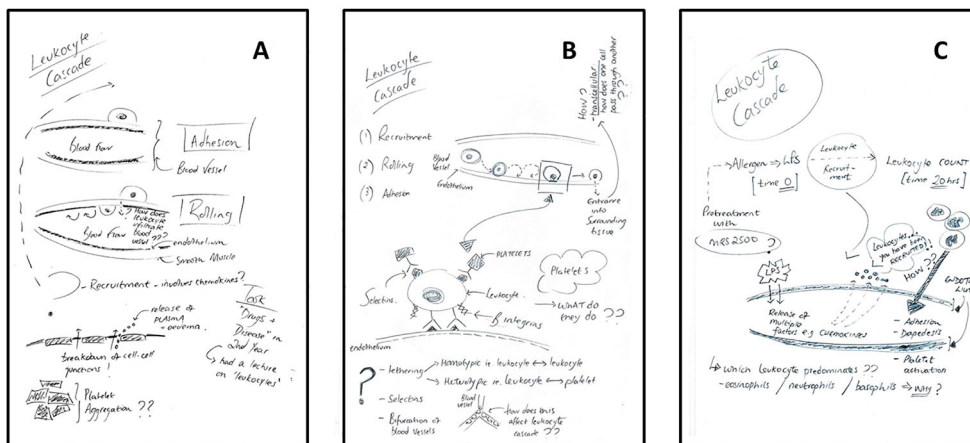 A
Leukocyte
Cascade
Blood Flow
Adhesion
Blood Vessel
Rolling
How does
leukocyte
infiltrate
blood
vessel ???
Blood Flow
endothelium
Smooth Muscle
Recruitment - involves chemokines?
release of
plasma
→ oedema.
breakdown of cell-cell
junctions!
Task
"Drugs +
Disease" in
2nd Year
had a lecture
on 'leukocytes'
Platelet
Aggregation ??
B
Leukocyte
Cascade
How?
- transcellular
how does one cell
pass through another
??
(1) Recruitment
(2) Rolling
(3) Adhesion
Blood
Vessel
Endothelium
Entrance
into
surrounding
tissue
PLATELETS
Selectins
Platelets
leukocyte
→ WHAT do
they do ??
β integrins
endothelium
?
- tethering
Homotypic ie. leukocyte ↔ leukocyte
Heterotypic ie. leukocyte ↔ platelet
- Selectins
- Bifurcation of
blood vessels
Blood
vessel
how does this
affect leukocyte
cascade ??
C
Leukocyte
Cascade
→ Allergen → LPS
[time 0]
Leukocyte
Recruit-
ment
Leukocyte COUNT
[time 20hrs]
Pretreatment
with
MRS2500
LPS
Leukocytes...
you have been
RECRUITED!
HOW??
Release of
multiple
factors e.g chemokines
- Adhesion
- Diapedesis
- Platelet
activation
↳ which leukocyte predominates ??
- eosinophils / neutrophils / basophils ⇒ WHY?